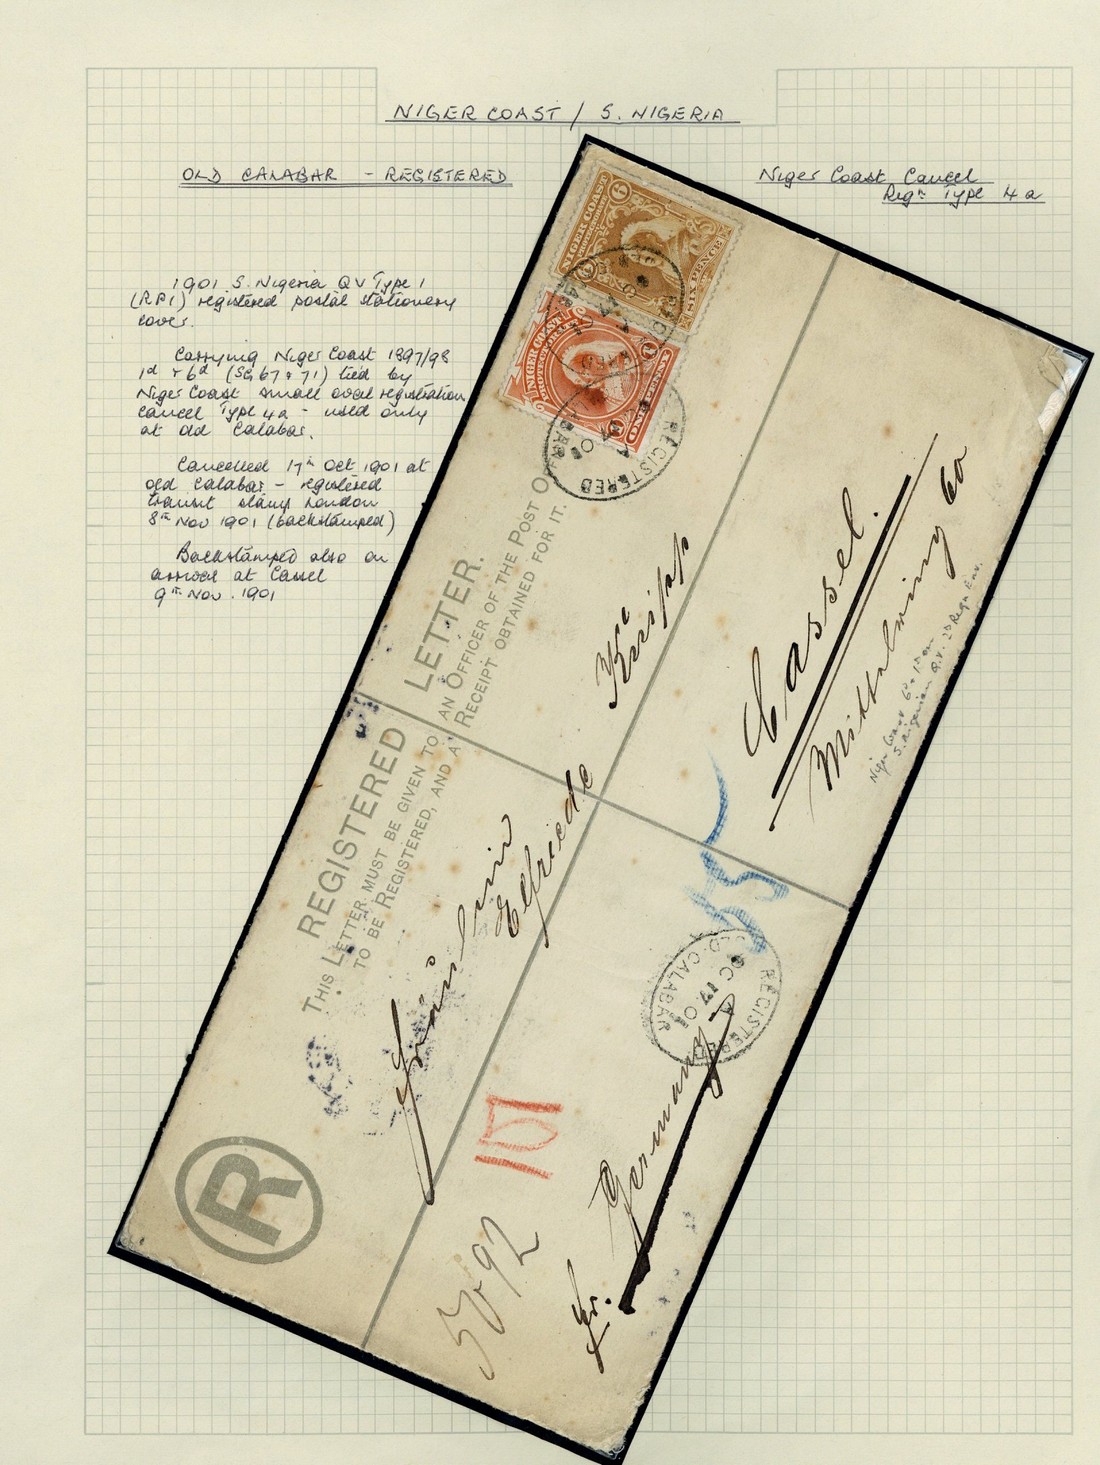 NIGER COAST / S. NIGERIA
OLD CALABAR - REGISTERED
Niger Coast Cancel
Regn Type 4a
1901 S. Nigeria QV Type 1
(RP1) registered postal stationery
cover.
Carrying Niger Coast 1897/98
1d + 6d (SG 67 + 71) tied by
Niger Coast small oval registration
cancel Type 4a - used only
at Old Calabar.
Cancelled 17th Oct 1901 at
Old Calabar - registered
transit stamp London
8th Nov 1901 (backstamped)
Backstamped also on
arrival at Cassel
9th Nov. 1901
NIGER COAST
PROTECTORATE
6
6
SIX PENCE
NIGER COAST
PROTECTORATE
1
1
ONE PENNY
REGISTERED
REGISTERED LETTER.
THIS LETTER MUST BE GIVEN TO AN OFFICER OF THE POST O
TO BE REGISTERED, AND A RECEIPT OBTAINED FOR IT.
R
Fräulein
Elfriede
Cassel.
Germany
REGISTERED
OC 17 01
OLD-CALABAR
101
5092
Niger Coast 6d + 1d on
S. Nigerian Q.V. 2d Regn Env.